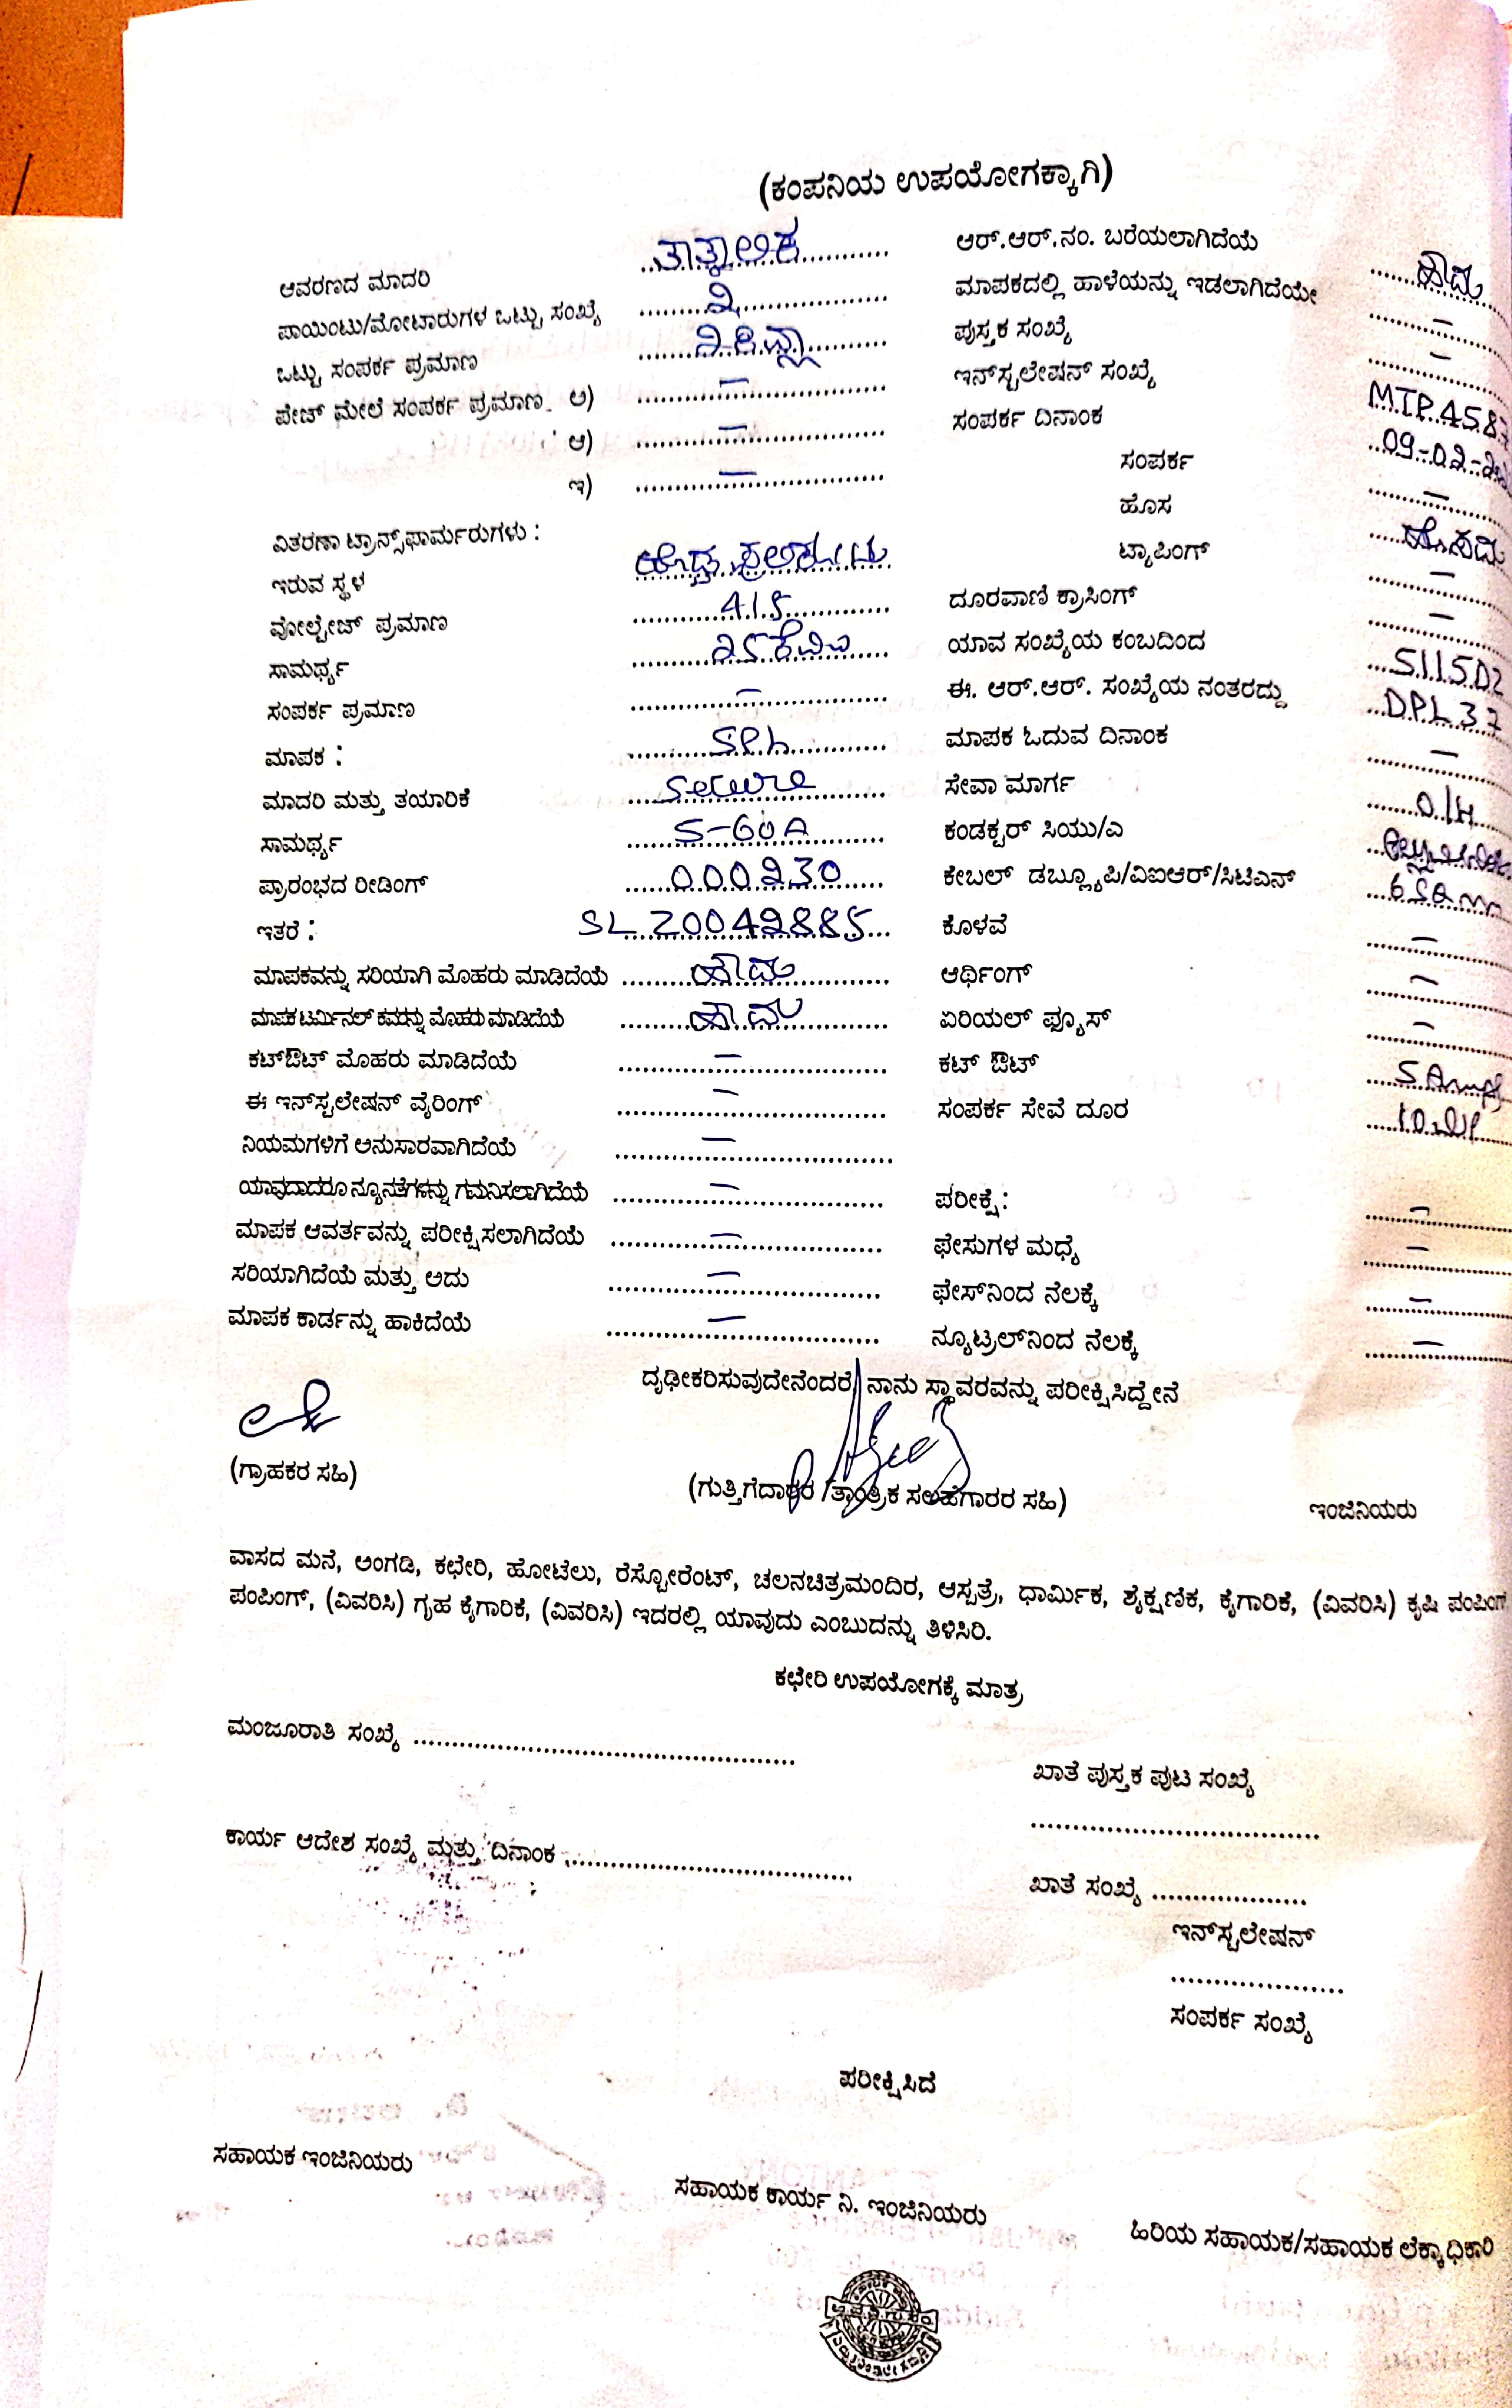 (ಕಂಪನಿಯ ಉಪಯೋಗಕ್ಕಾಗಿ)
ಆವರಣದ ಮಾದರಿ ತಾತ್ಕಾಲಿಕ
ಪಾಯಿಂಟು/ಮೋಟಾರುಗಳ ಒಟ್ಟು ಸಂಖ್ಯೆ ೨
ಒಟ್ಟು ಸಂಪರ್ಕ ಪ್ರಮಾಣ
ಪೇಜ್ ಮೇಲೆ ಸಂಪರ್ಕ ಪ್ರಮಾಣ. ಅ) —
ಆ) —
ಇ) —
ವಿತರಣಾ ಟ್ರಾನ್ಸ್‌ಫಾರ್ಮರುಗಳು :
ಇರುವ ಸ್ಥಳ
ವೋಲ್ಟೇಜ್ ಪ್ರಮಾಣ 415
ಸಾಮರ್ಥ್ಯ ೨5 ಕೆವಿಎ
ಸಂಪರ್ಕ ಪ್ರಮಾಣ —
ಮಾಪಕ : SPL
ಮಾದರಿ ಮತ್ತು ತಯಾರಿಕೆ Secure
ಸಾಮರ್ಥ್ಯ 5-60A
ಪ್ರಾರಂಭದ ರೀಡಿಂಗ್ 000230
ಇತರೆ : SL 20042885
ಮಾಪಕವನ್ನು ಸರಿಯಾಗಿ ಮೊಹರು ಮಾಡಿದೆಯೆ ಹೌದು
ಮಾಪಕ ಟರ್ಮಿನಲ್ ಕವರನ್ನು ಮೊಹರು ಮಾಡಿದೆಯೆ ಹೌದು
ಕಟ್‌ಔಟ್ ಮೊಹರು ಮಾಡಿದೆಯೆ —
ಈ ಇನ್‌ಸ್ಟಲೇಷನ್ ವೈರಿಂಗ್ —
ನಿಯಮಗಳಿಗೆ ಅನುಸಾರವಾಗಿದೆಯೆ —
ಯಾವುದಾದರೂ ನ್ಯೂನತೆಗಳನ್ನು ಗಮನಿಸಲಾಗಿದೆಯೆ —
ಮಾಪಕ ಆವರ್ತವನ್ನು ಪರೀಕ್ಷಿಸಲಾಗಿದೆಯೆ —
ಸರಿಯಾಗಿದೆಯೆ ಮತ್ತು ಅದು —
ಮಾಪಕ ಕಾರ್ಡನ್ನು ಹಾಕಿದೆಯೆ —
ಆರ್.ಆರ್.ನಂ. ಬರೆಯಲಾಗಿದೆಯೆ ಹೌದು
ಮಾಪಕದಲ್ಲಿ ಹಾಳೆಯನ್ನು ಇಡಲಾಗಿದೆಯೇ —
ಪುಸ್ತಕ ಸಂಖ್ಯೆ —
ಇನ್‌ಸ್ಟಲೇಷನ್ ಸಂಖ್ಯೆ MTP 458
ಸಂಪರ್ಕ ದಿನಾಂಕ 09-02-
ಸಂಪರ್ಕ —
ಹೊಸ ಹೊಸದು
ಟ್ಯಾಪಿಂಗ್ —
ದೂರವಾಣಿ ಕ್ರಾಸಿಂಗ್ —
ಯಾವ ಸಂಖ್ಯೆಯ ಕಂಬದಿಂದ
ಈ. ಆರ್.ಆರ್. ಸಂಖ್ಯೆಯ ನಂತರದ್ದು DPL 37
ಮಾಪಕ ಓದುವ ದಿನಾಂಕ —
ಸೇವಾ ಮಾರ್ಗ O/H
ಕಂಡಕ್ಟರ್ ಸಿಯು/ಎ
ಕೇಬಲ್ ಡಬ್ಲ್ಯೂಪಿ/ವಿಐಆರ್/ಸಿಟಿಎನ್
ಕೊಳವೆ —
ಆರ್ಥಿಂಗ್ —
ಏರಿಯಲ್ ಫ್ಯೂಸ್ —
ಕಟ್ ಔಟ್
ಸಂಪರ್ಕ ಸೇವೆ ದೂರ
ಪರೀಕ್ಷೆ: —
ಫೇಸುಗಳ ಮಧ್ಯೆ —
ಫೇಸ್‌ನಿಂದ ನೆಲಕ್ಕೆ —
ನ್ಯೂಟ್ರಲ್‌ನಿಂದ ನೆಲಕ್ಕೆ —
ದೃಢೀಕರಿಸುವುದೇನೆಂದರೆ ನಾನು ಸ್ಥಾವರವನ್ನು ಪರೀಕ್ಷಿಸಿದ್ದೇನೆ
(ಗ್ರಾಹಕರ ಸಹಿ)
(ಗುತ್ತಿಗೆದಾರರ /ತಾಂತ್ರಿಕ ಸಲಹೆಗಾರರ ಸಹಿ)
ಇಂಜಿನಿಯರು
ವಾಸದ ಮನೆ, ಅಂಗಡಿ, ಕಛೇರಿ, ಹೋಟೆಲು, ರೆಸ್ಟೋರೆಂಟ್, ಚಲನಚಿತ್ರಮಂದಿರ, ಆಸ್ಪತ್ರೆ, ಧಾರ್ಮಿಕ, ಶೈಕ್ಷಣಿಕ, ಕೈಗಾರಿಕೆ, (ವಿವರಿಸಿ) ಕೃಷಿ ಪಂಪಿಂಗ್
ಪಂಪಿಂಗ್, (ವಿವರಿಸಿ) ಗೃಹ ಕೈಗಾರಿಕೆ, (ವಿವರಿಸಿ) ಇದರಲ್ಲಿ ಯಾವುದು ಎಂಬುದನ್ನು ತಿಳಿಸಿರಿ.
ಕಛೇರಿ ಉಪಯೋಗಕ್ಕೆ ಮಾತ್ರ
ಮಂಜೂರಾತಿ ಸಂಖ್ಯೆ
ಖಾತೆ ಪುಸ್ತಕ ಪುಟ ಸಂಖ್ಯೆ
ಕಾರ್ಯ ಆದೇಶ ಸಂಖ್ಯೆ ಮತ್ತು ದಿನಾಂಕ
ಖಾತೆ ಸಂಖ್ಯೆ
ಇನ್‌ಸ್ಟಲೇಷನ್
ಸಂಪರ್ಕ ಸಂಖ್ಯೆ
ಪರೀಕ್ಷಿಸಿದೆ
ಸಹಾಯಕ ಇಂಜಿನಿಯರು
ಸಹಾಯಕ ಕಾರ್ಯ ನಿ. ಇಂಜಿನಿಯರು
ಹಿರಿಯ ಸಹಾಯಕ/ಸಹಾಯಕ ಲೆಕ್ಕಾಧಿಕಾರಿ